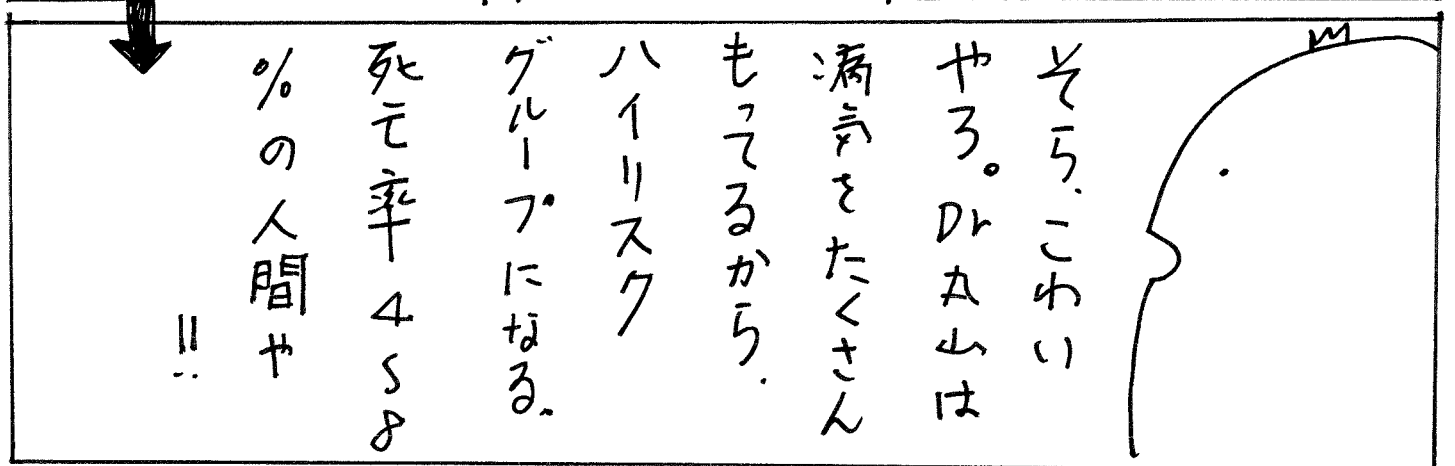 そら、こわい
やろ。Dr丸山は
病気をたくさん
もってるから、
ハイリスク
グループになる。
死亡率4〜8
%の人間や
!!